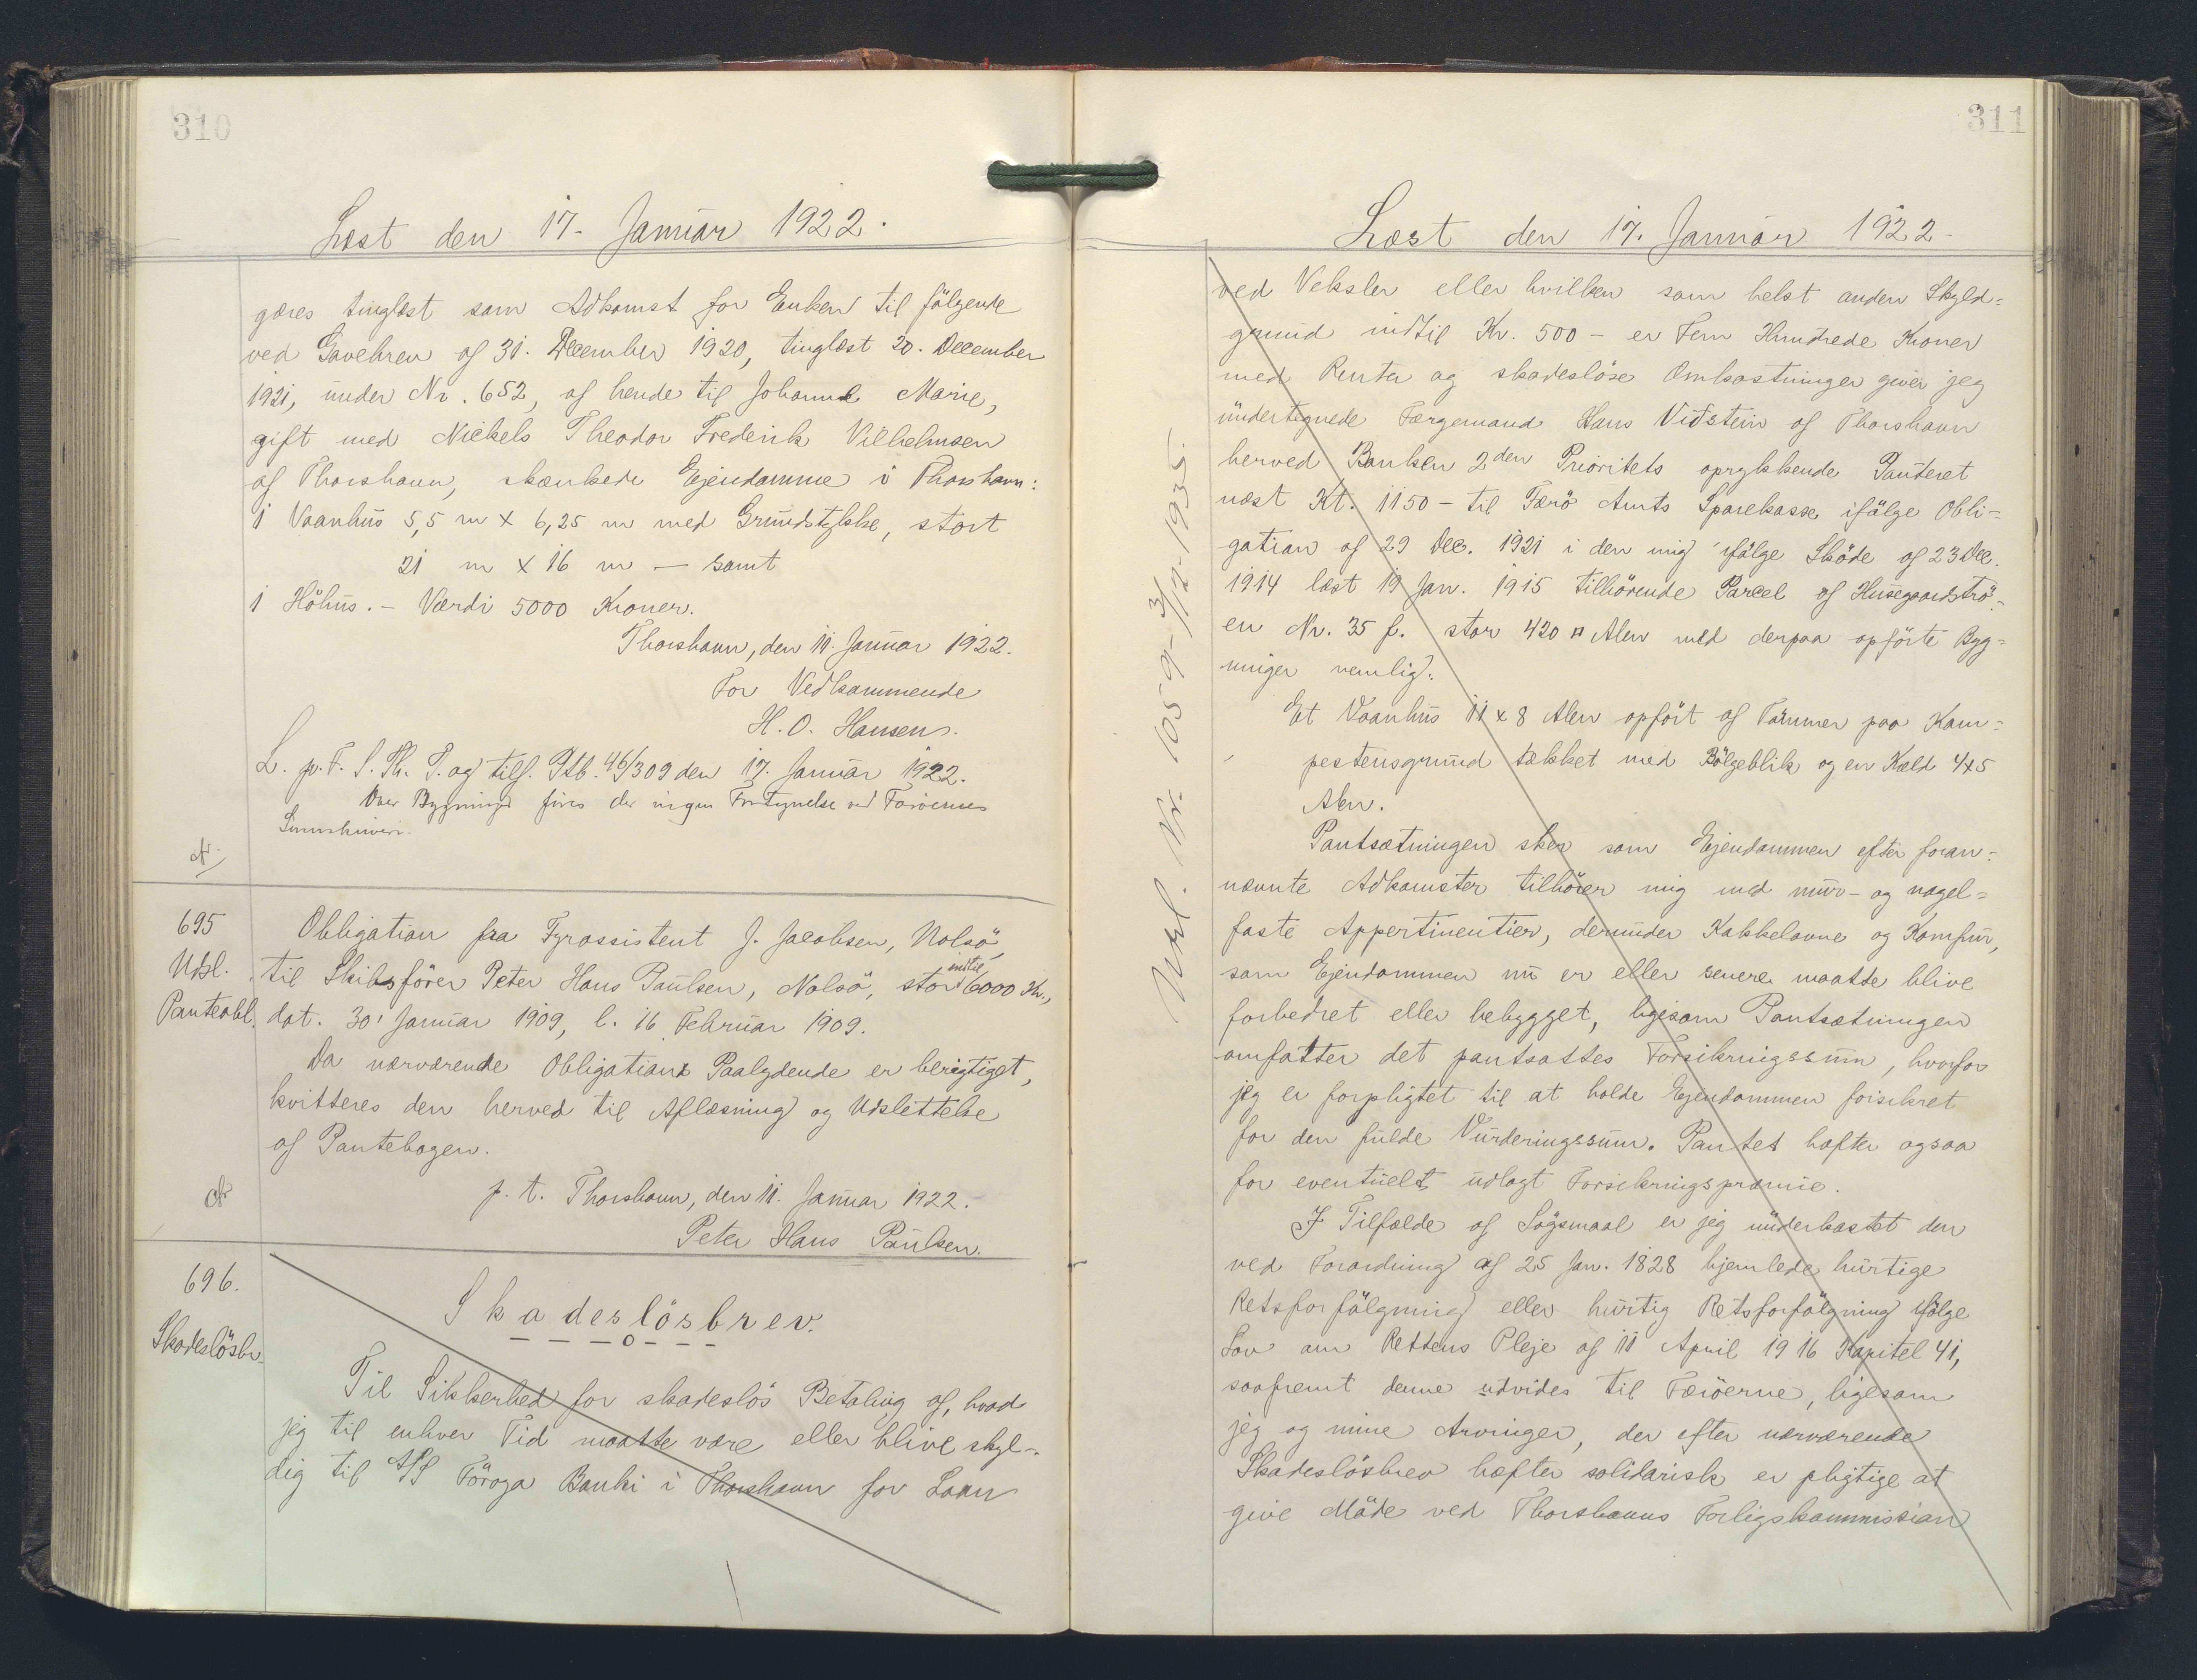 310
Læst den 17. Januar 1922.
gøres tinglæst som Adkomst for Enken til følgende
ved Gavebrev af 31. December 1920, tinglæst 20. December
1921, under Nr. 652, af hende til Johanne Marie,
gift med Nickels Theodor Frederik Vilhelmsen
af Thorshavn, skænkede Ejendomme i Thorshavn:
1 Vaanhus 5,5 m x 6,25 m med Grundstykke, stort
21 m x 16 m — samt
1 Höhus. - Værdi 5000 Kroner.
Thorshavn, den 11. Januar 1922.
For Vedkommende
H. O. Hansen.
L. p. F. S. Th. T. og tilf. Ptb. 46/309 den 17. Januar 1922.
Over Bygninger føres der ingen Fortegnelse ved Færøernes
695
Udsl.
Panteobl.
Obligation fra Fyrassistent J. Jacobsen, Nolsö,
til Skibsförer Peter Hans Paulsen, Nolsö, stor indtil 6000 Kr.,
dat. 30' Januar 1909, l. 16 Februar 1909.
Da nærværende Obligations Paalydende er berigtiget,
kvitteres den herved til Aflæsning og Udslettelse
af Pantebogen.
p. t. Thorshavn, den 11. Januar 1922.
Peter Hans Paulsen.
696.
Skadeslösbr.
Skadeslösbrev.
Til Sikkerhed for skadeslös Betaling af, hvad
jeg til enhver Tid maatte være eller blive skyl-
dig til A/S Föroya Banki i Thorshavn for Laan
311
Læst den 17. Januar 1922-
Udsl. Nr. 1059 - 3/12-1935.
ved Veksler eller hvilken som helst anden Skyld-
grund indtil Kr. 500 - er Fem Hundrede Kroner
med Renter og skadeslöse Omkostninger giver jeg
undertegnede Færgemand Hans Viðstein af Thorshavn
herved Banken 2den Prioritets oprykkende Panteret
næst Kr. 1150 - til Færö Amts Sparekasse ifälge Obli-
gation af 29 Dec. 1921 i den mig ifälge Sköde af 23 Dec.
1914 læst 19 Jan. 1915 tilhörende Parcel af Husegaardströ-
en Nr. 35 f. stor 420 □ Alen med derpaa opförte Byg-
ninger nemlig:
Et Vaanhus 11 x 8 Alen opfört af Tömmer paa Kam-
pestensgrund tækket med Bölgeblik og en Kæld 4x5
Alen.
Pantsætningen sker som Ejendommen efter foran-
nævnte Adkomster tilhörer mig med mur- og nagel-
faste Appertinentier, derunder Kakkelovne og Komfur,
som Ejendommen nu er eller senere maatte blive
forbedret eller bebygget, ligesom Pantsætningen
omfatter det pantsattes Forsikringssum, hvorfor
jeg er forpligtet til at holde Ejendommen forsikret
for den fulde Vurderingssum. Pantet hæfter ogsaa
for eventuelt udlagt Forsikringspræmie.
I Tilfælde af Søgsmaal er jeg underkastet den
ved Forordning af 25 Jan. 1828 hjemlede hurtige
Retsforfölgning eller hurtig Retsforfölgning ifölge
Lov om Rettens Pleje af 11 April 1916 Kapitel 41,
saafremt denne udvides til Færöerne, ligesom
jeg og mine Arvinger, der efter nærværende
Skadeslösbrev hæfter solidarisk er pligtige at
give Möde ved Thorshavns Forligskommission